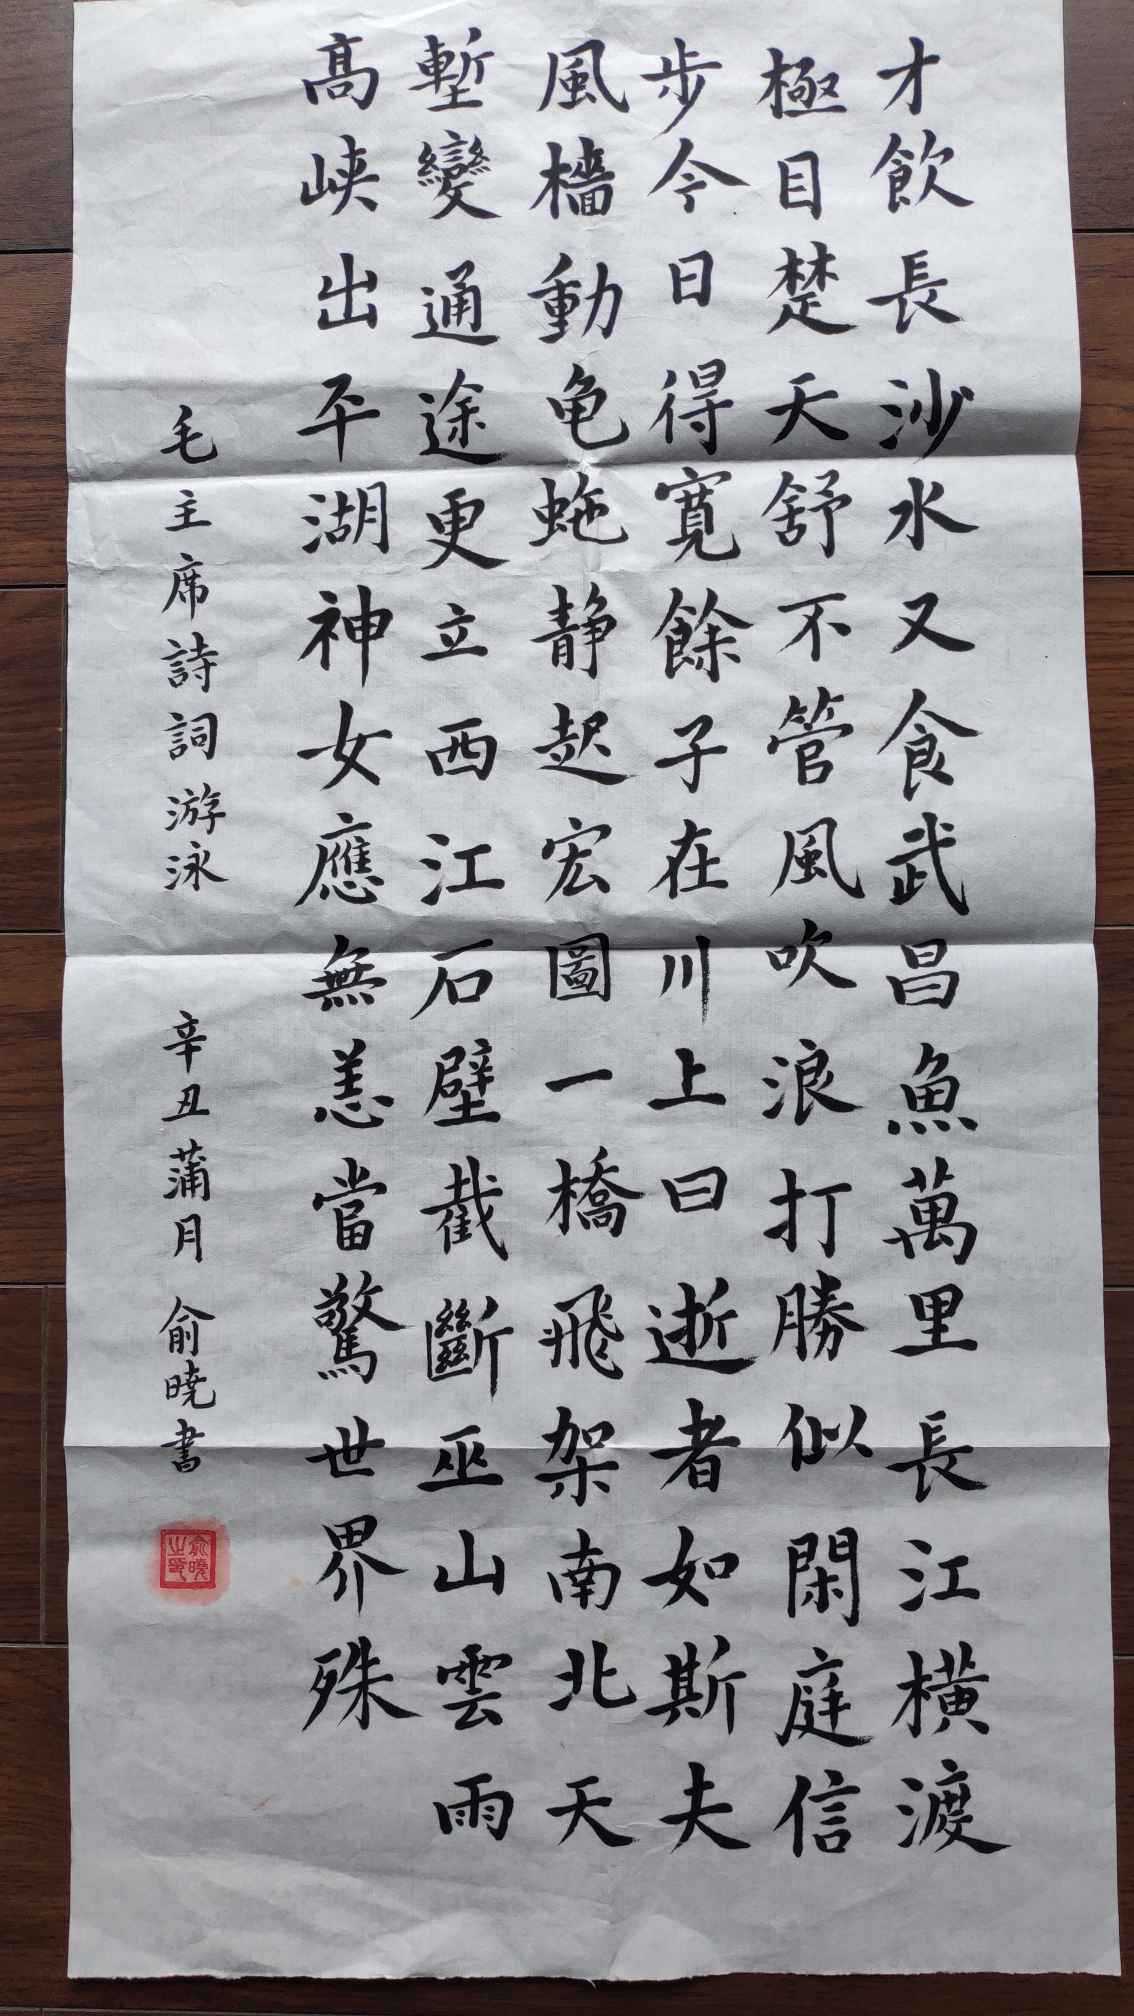 才飲長沙水又食武昌魚萬里長江横渡
極目楚天舒不管風吹浪打勝似閑庭信
步今日得寬餘子在川上曰逝者如斯夫
風檣動龟蛇静起宏圖一橋飛架南北天
塹變通途更立西江石壁截斷巫山雲雨
高峡出平湖神女應無恙當驚世界殊
毛主席詩詞游泳 辛丑蒲月 俞曉書
俞曉之印